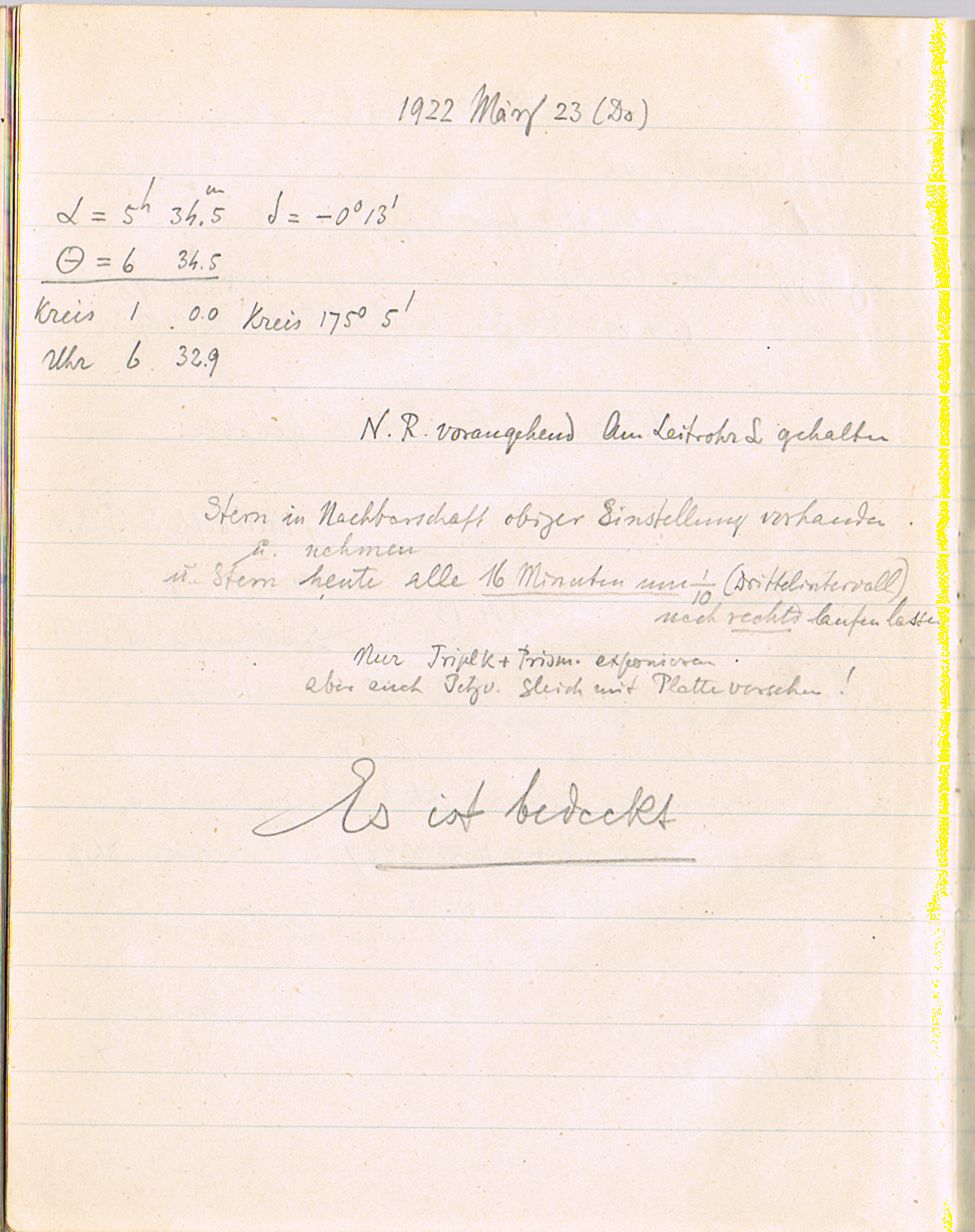 1922 März 23 (Do)
α = 5h 34.5m δ = -0° 13'
Θ = 6 34.5
Kreis 1 0.0 Kreis 175° 5'
Uhr 6 32.9
N. R. vorangehend Am Leitrohr gehalten
Stern in Nachbarschaft obiger Einstellung vorhanden.
u. nehmen
u. Stern heute alle 16 Minuten um 1/10 (Drittelintervall)
nach rechts laufen lassen
Nur Tripl k + Prism. exponieren.
aber auch Petzv. gleich mit Platte versehen!
Es ist bedeckt